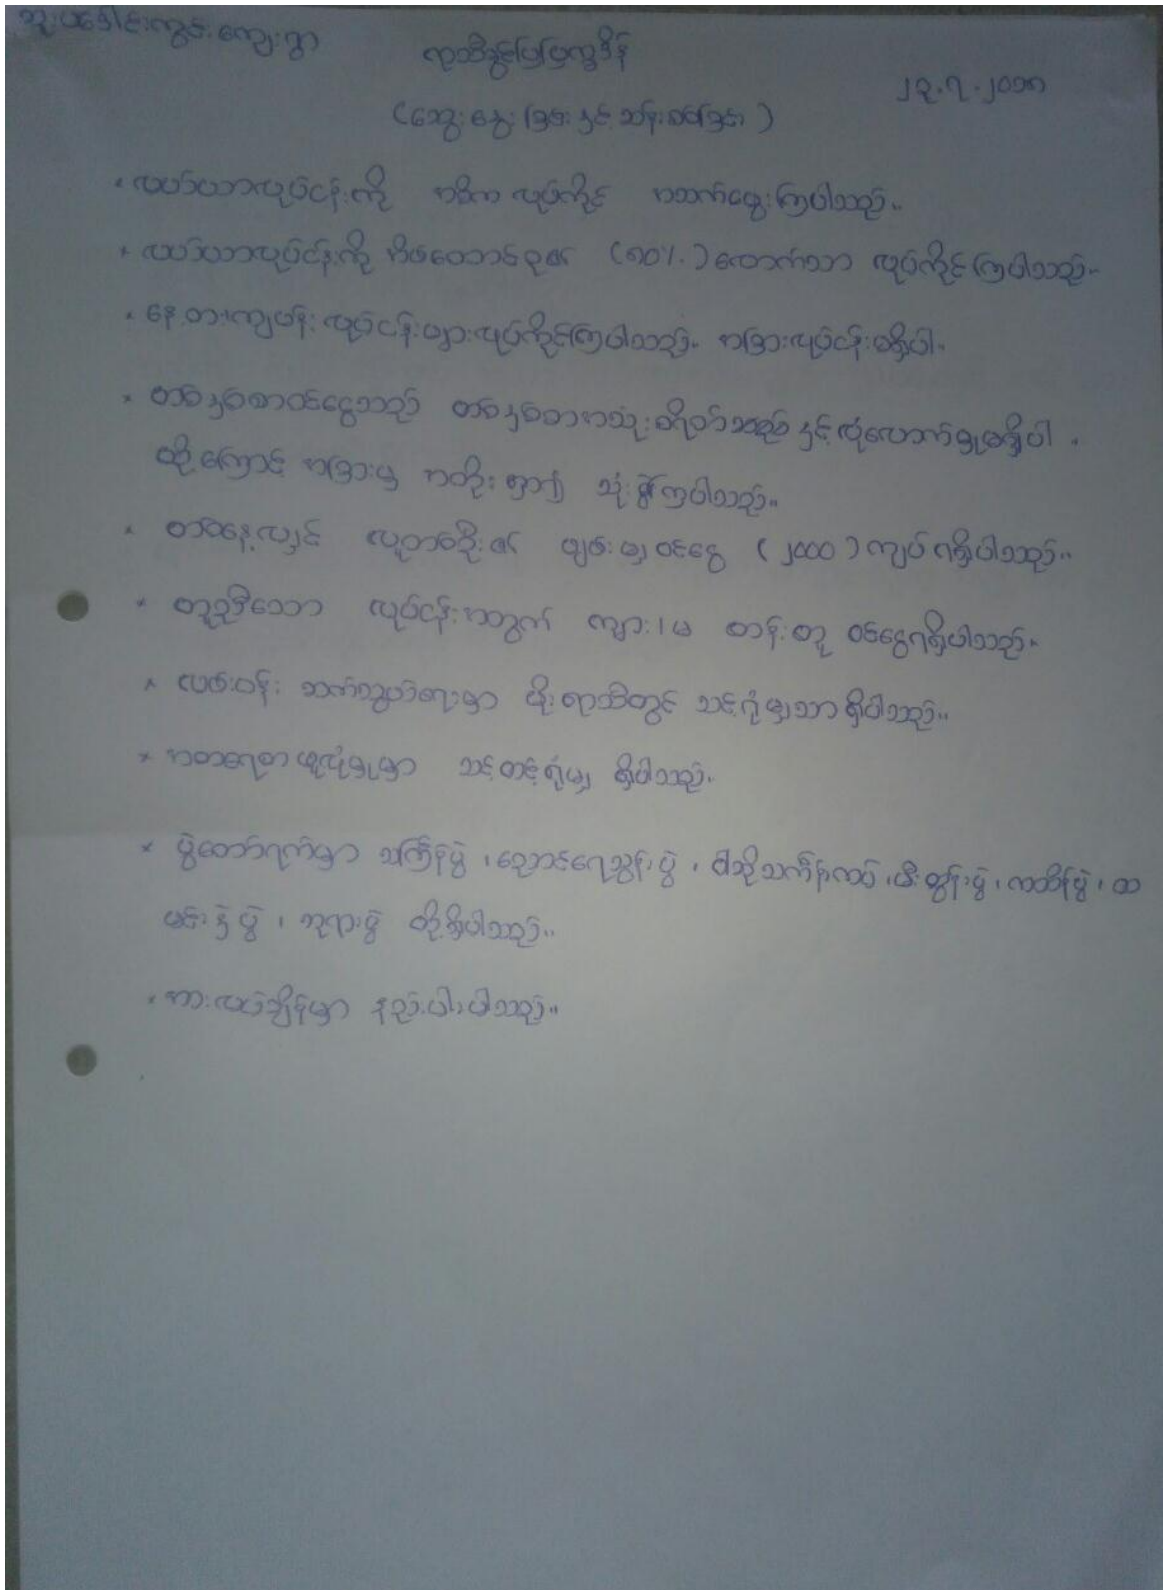 ဘူးပခေါင်းကွင်းကျေးရွာ
ရာသီခွင်ပြပြက္ခဒိန်
၂၃.၇.၂၀၁၈
(ဆွေးနွေးခြင်းနှင့် သန်းစစ်ခြင်း)
* လယ်ယာလုပ်ငန်းကို အဓိက လုပ်ကိုင် အသက်မွေးကြပါသည်။
* လယ်ယာလုပ်ငန်းကို အိမ်ထောင်စု၏ (၈၀%) လောက်သာ လုပ်ကိုင်ကြပါသည်။
* နေ့စားကျပန်းလုပ်ငန်းများလုပ်ကိုင်ကြပါသည်။ အခြားလုပ်ငန်းမရှိပါ။
* တစ်နှစ်တာဝင်ငွေသည် တစ်နှစ်တာအသုံးစရိတ်သည် နှင့်လုံလောက်မှုမရှိပါ။
ထို့ကြောင့် အခြားမှ အတိုးရှာ၍ သုံးစွဲကြပါသည်။
* တစ်နေ့လျှင် လူတစ်ဦး၏ ပျမ်းမျှဝင်ငွေ (၂၀၀၀) ကျပ် ရရှိပါသည်။
* တူညီသော လုပ်ငန်းအတွက် ကျား၊မ တန်းတူ ဝင်ငွေရရှိပါသည်။
* လမ်းပန်း ဆက်သွယ်ရေးမှာ မိုးရာသီတွင် သင့်ရုံမျှသာ ရှိပါသည်။
* အစာရေစာဖူလုံမှုမှာ သင့်တင့်ရုံမျှ ရှိပါသည်။
* ပွဲတော်ရက်မှာ သင်္ကြန်ပွဲ၊ ညောင်ရေသွန်းပွဲ၊ ဝါဆိုသင်္ကန်းကပ်၊ မီးထွန်းပွဲ၊ ကထိန်ပွဲ၊ ထ
မင်းနှဲပွဲ၊ ဘုရားပွဲ တို့ရှိပါသည်။
* အားလပ်ချိန်မှာ နည်းပါးပါသည်။